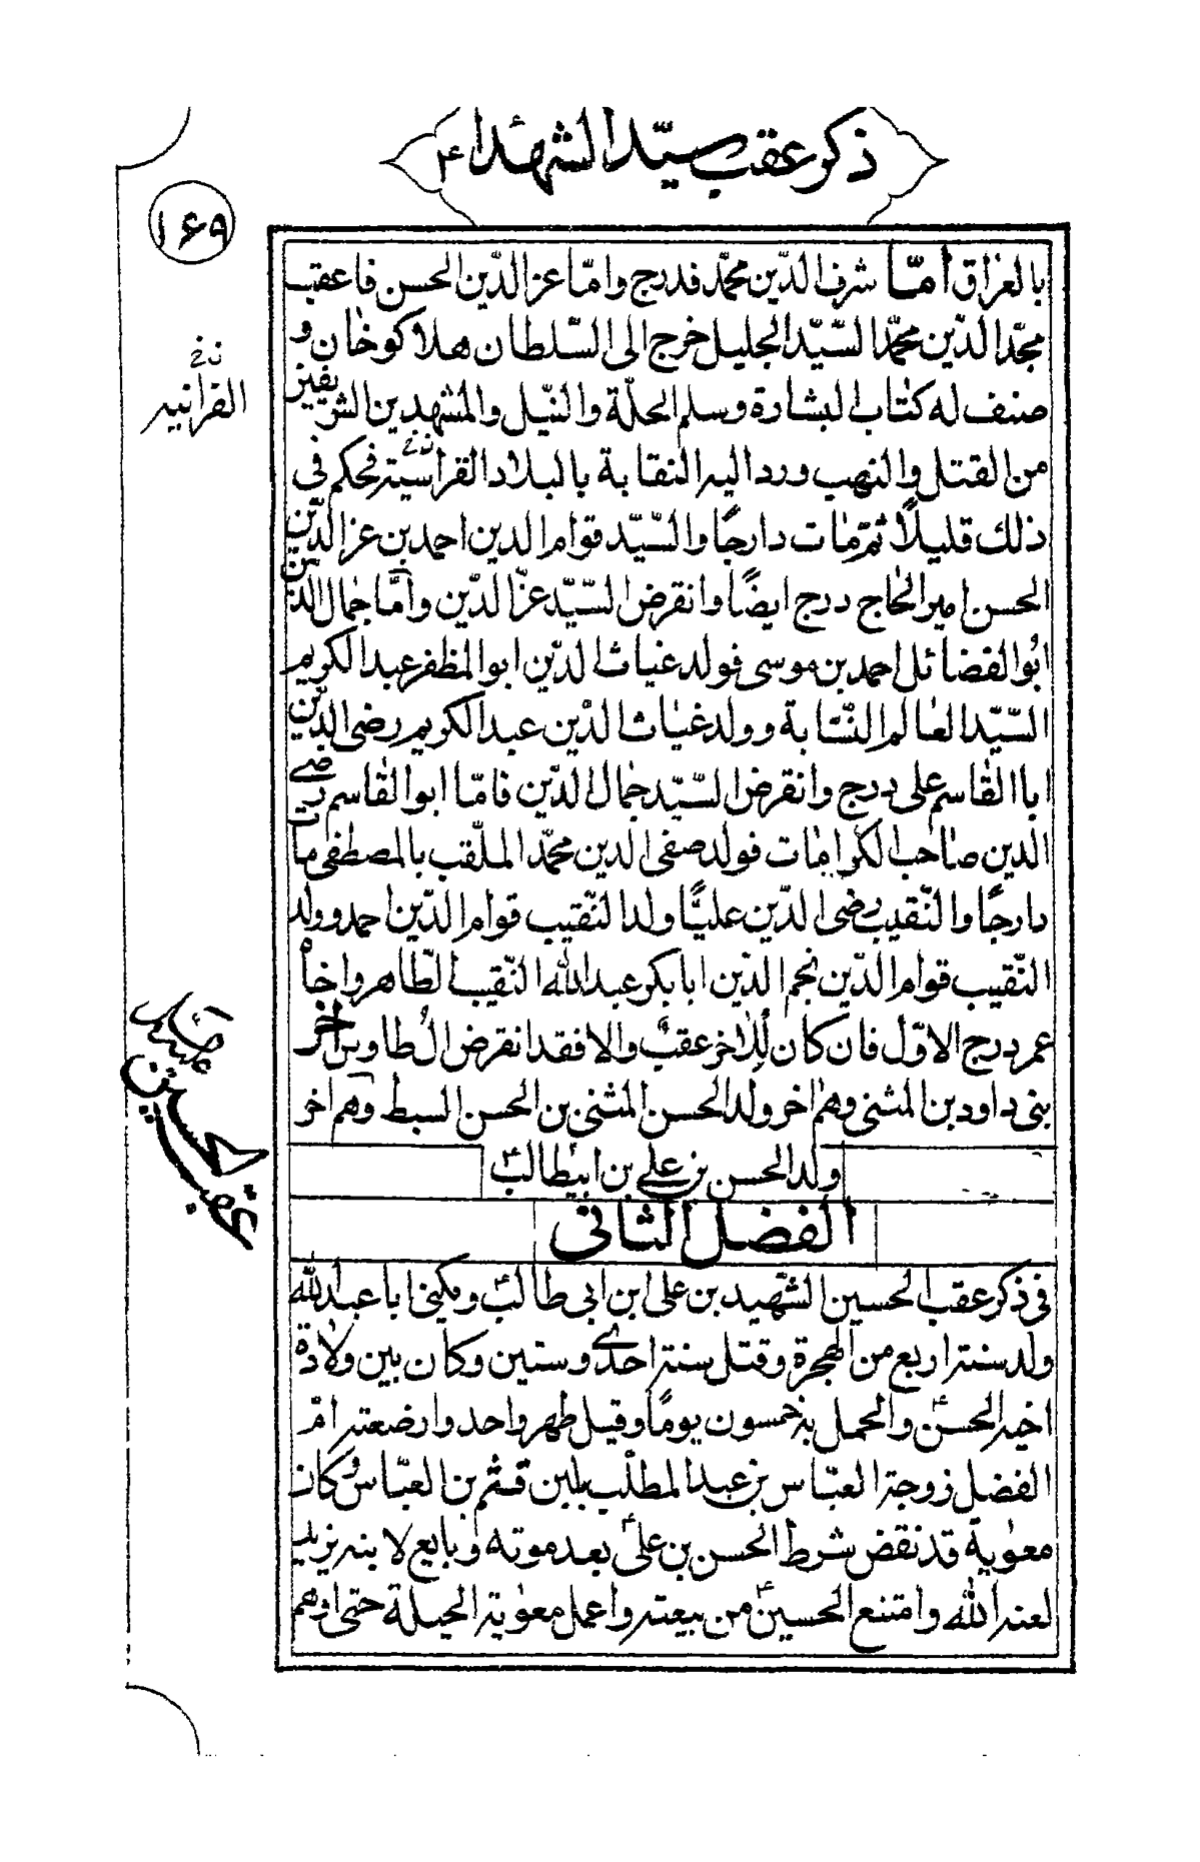 ذكر عقب سيّد الشهداء ع
١۶٩
بالعراق أمّا شرف الدّين محمّد فدرج وامّا عز الدّين الحسن فاعقب
مجد الدّين محمّد السّيّد الجليل خرج الى السّلطان هلاكو خان و
صنف له كتاب البشارة وسلم الحلّة والنّيل والمشهدين الشريفين
من القتل والنهب ورد اليه النقابة بالبلاد القراسية فحكم في
القرانيه
ذلك قليلاً ثمّ مات دارجًا والسّيّد قوام الدين احمد بن عز الدّين
الحسن امير الحاج درج ايضًا وانقرض السّيّد عزّ الدّين وأمّا جمال الدين
ابو الفضائل احمد بن موسى فولد غياث الدّين ابو المظفر عبد الكريم
السّيّد العالم النّسّابة وولد غياث الدّين عبد الكريم رضى الدّين
ابا القاسم على درج وانقرض السّيّد جمال الدّين فامّا ابو القاسم رضى
الدين صاحب الكرامات فولد صفى الدين محمّد الملّقب بالمصطفى مات
دارجًا والنّقيب رضى الدّين عليًّا ولد النّقيب قوام الدّين احمد وولد
النّقيب قوام الدّين نجم الدّين ابا بكر عبد الله النّقيب الطّاهر واخاً
عمر درج الاوّل فان كان للاٰخر عقبٌ والا فقد انقرض ال طاوس اٰخر
بنى داود بن المثنى وهم اٰخر ولد الحسن المثنى بن الحسن السبط وهم اخر
ولد الحسن بن على بن ابيطالب ع
الفصل الثانى
عقب الحسين
فى ذكر عقب الحسين الشّهيد بن على ابن ابى طالب ع ويكنى ابا عبد الله
ولد سنة اربع من الهجرة وقتل سنة احدى وستين وكان بين ولادة
اخيه الحسن ع والحمل به خمسون يومًا وقيل طهر واحد وارضعته امّ
الفضل زوجة العبّاس بن عبد المطلب بلبن قثم بن العبّاس وكان
معوٰية قد نقض شرط الحسن بن على ع بعد موته وبايع لابنه يزيد
لعنه الله وامتنع الحسين ع من بيعته واعمل معوٰية الحيلة حتى اوهم